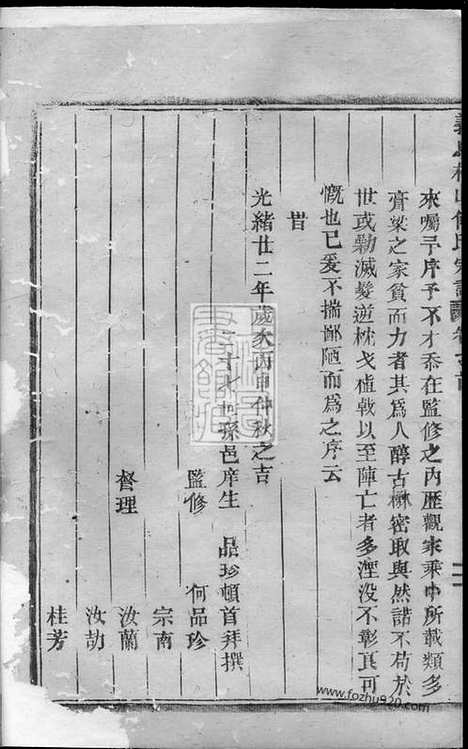 來囑予序予不才忝在監修之內歷觀家乘中所載類多
膏粱之家貧而力者其爲人醇古樕密取與然諾不苟於
世或勦滅髮逆枕戈植戟以至陣亡者多湮没不彰良可
慨也已爰不揣鄙陋而爲之序云
旹
光緒廿二年歲次丙申仲秋之吉
二十七世孫邑庠生 品珍頓首拜撰
監修 何品珍
宗南
督理 汝蘭
汝劼
桂芳
www.fozhu920.com